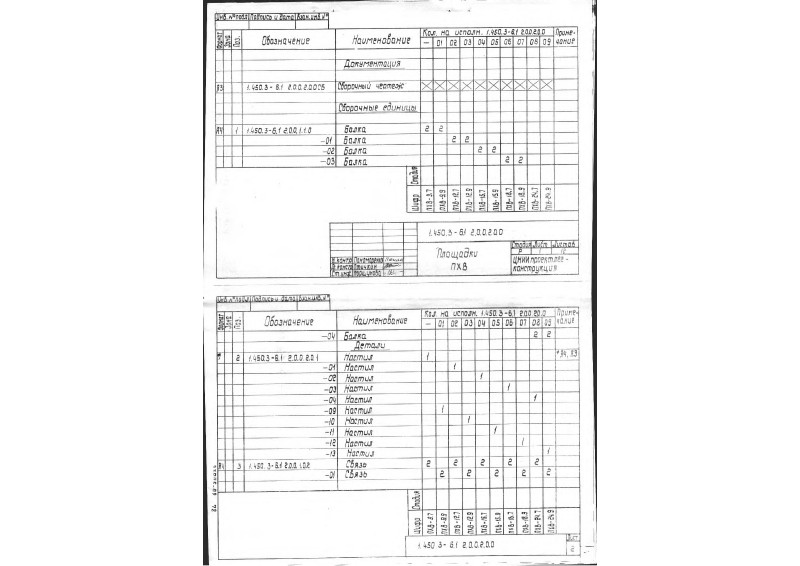 Инв. № подл. Подпись и дата Взам. инв. №
Формат Зона Поз. Обозначение Наименование Кол. на исполн. 1.450.3-6.1 2.0.0.2.0.0 Приме-чание
— 01 02 03 04 05 06 07 08 09
Документация
А3 1.450.3-6.1 2.0.0.2.0.0СБ Сборочный чертеж X X X X X X X X X X
Сборочные единицы
А4 1 1.450.3-6.1 2.0.0.1.1.0 Балка 2 2
—01 Балка 2 2
—02 Балка 2 2
—03 Балка 2 2
Стадия
Шифр ПХВ-9.9 ПХВ-12.7 ПХВ-12.9 ПХВ-15.7 ПХВ-15.9 ПХВ-18.7 ПХВ-18.9 ПХВ-24.7 ПХВ-24.9
1.450.3-6.1 2.0.0.2.0.0
Площадки ПХВ
Стадия Лист Листов
Р 1
ЦНИИпроектлег-
конструкция
Н. контр. Пономаренко
Ст. инж.
Инв. № подл. Подпись и дата Взам. инв. №
Формат Зона Поз. Обозначение Наименование Кол. на исполн. 1.450.3-6.1 2.0.0.2.0.0 Приме-чание
— 01 02 03 04 05 06 07 08 09
—04 Балка 2 2
Детали
* 2 1.450.3-6.1 2.0.0.2.0.1 Настил 1 *А4, А3
—01 Настил 1
—02 Настил 1
—03 Настил 1
—04 Настил 1
—09 Настил 1
—10 Настил 1
—11 Настил 1
—12 Настил 1
—13 Настил 1
А4 3 1.450.3-6.1 2.0.0.1.0.2 Связь 2 2 2 2 2
—01 Связь 2 2 2 2 2
Стадия
Шифр ПХВ-9.9 ПХВ-12.7 ПХВ-12.9 ПХВ-15.7 ПХВ-15.9 ПХВ-18.7 ПХВ-18.9 ПХВ-24.7 ПХВ-24.9
1.450.3-6.1 2.0.0.2.0.0
Лист
2